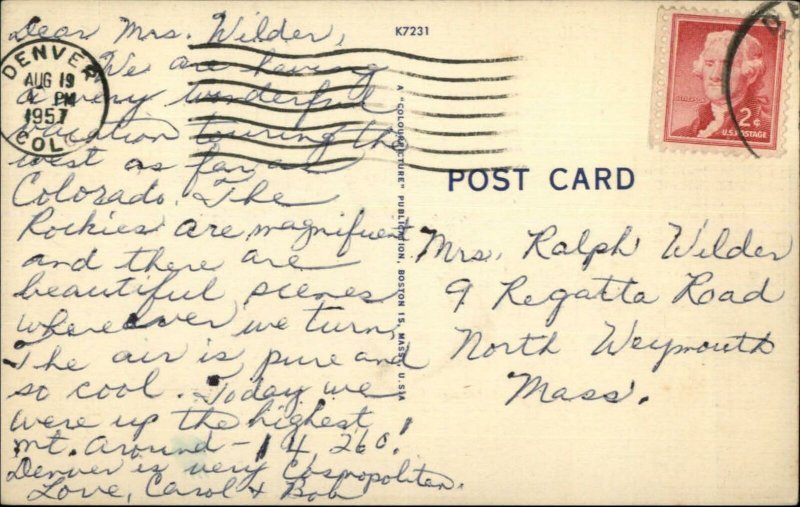 Dear Mrs. Wilder,
We are having
a very wonderful
vacation touring the
west as far as
Colorado. The
Rockies are magnificent
and there are
beautiful scenes
wherever we turn.
The air is pure and
so cool. Today we
were up the highest
mt. around - 14,260'!
Denver is very Cosmopolitan.
Love, Carol + Bob
DENVER
AUG 19
PM
1957
COL
K7231
A "COLOURPICTURE" PUBLICATION, BOSTON 15, MASS., U.S.A.
POST CARD
2¢
U.S. POSTAGE
Mrs. Ralph Wilder
9 Regatta Road
North Weymouth
Mass.